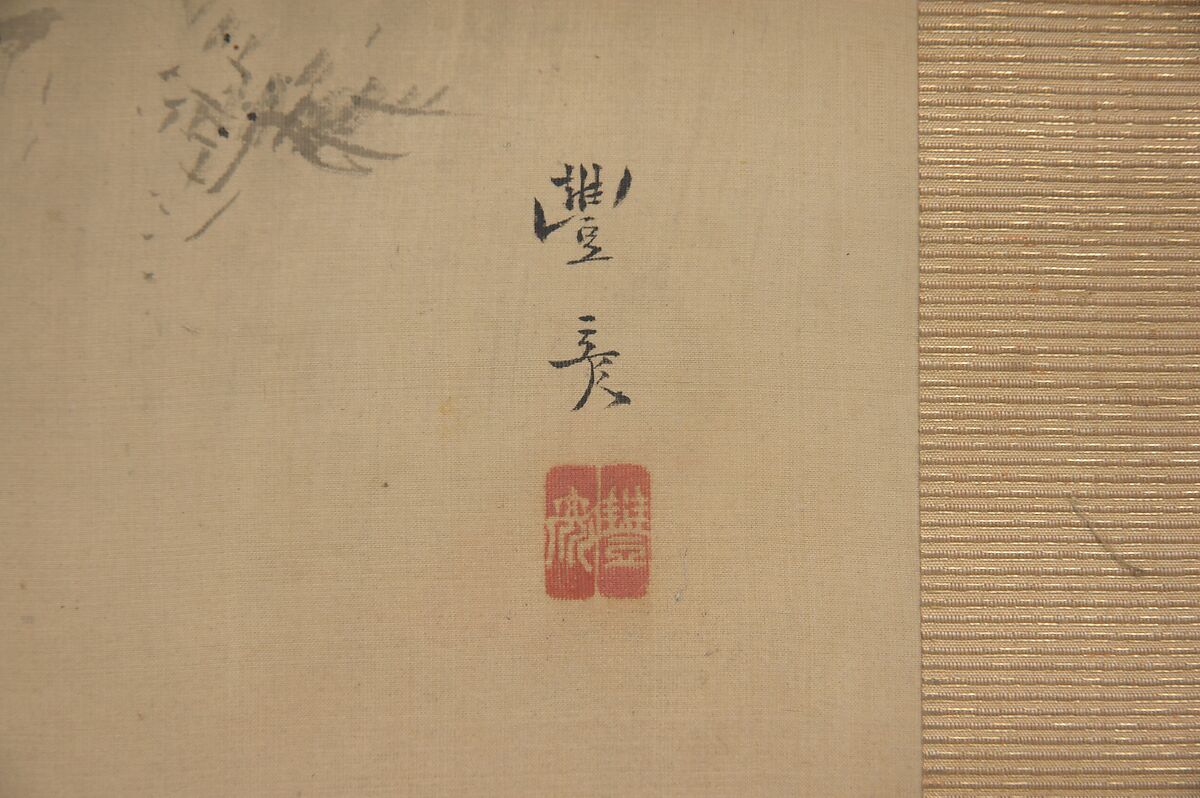 豐彦
豐彦